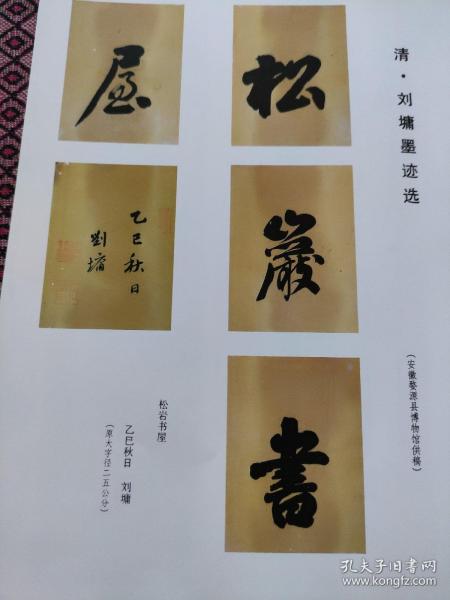 清·刘墉墨迹选
(安徽婺源县博物馆供稿)
松
巖
書
屋
乙巳秋日
劉墉
松岩书屋
乙巳秋日 刘墉
(原大字径二五公分)
孔夫子旧书网
www.kongfz.com